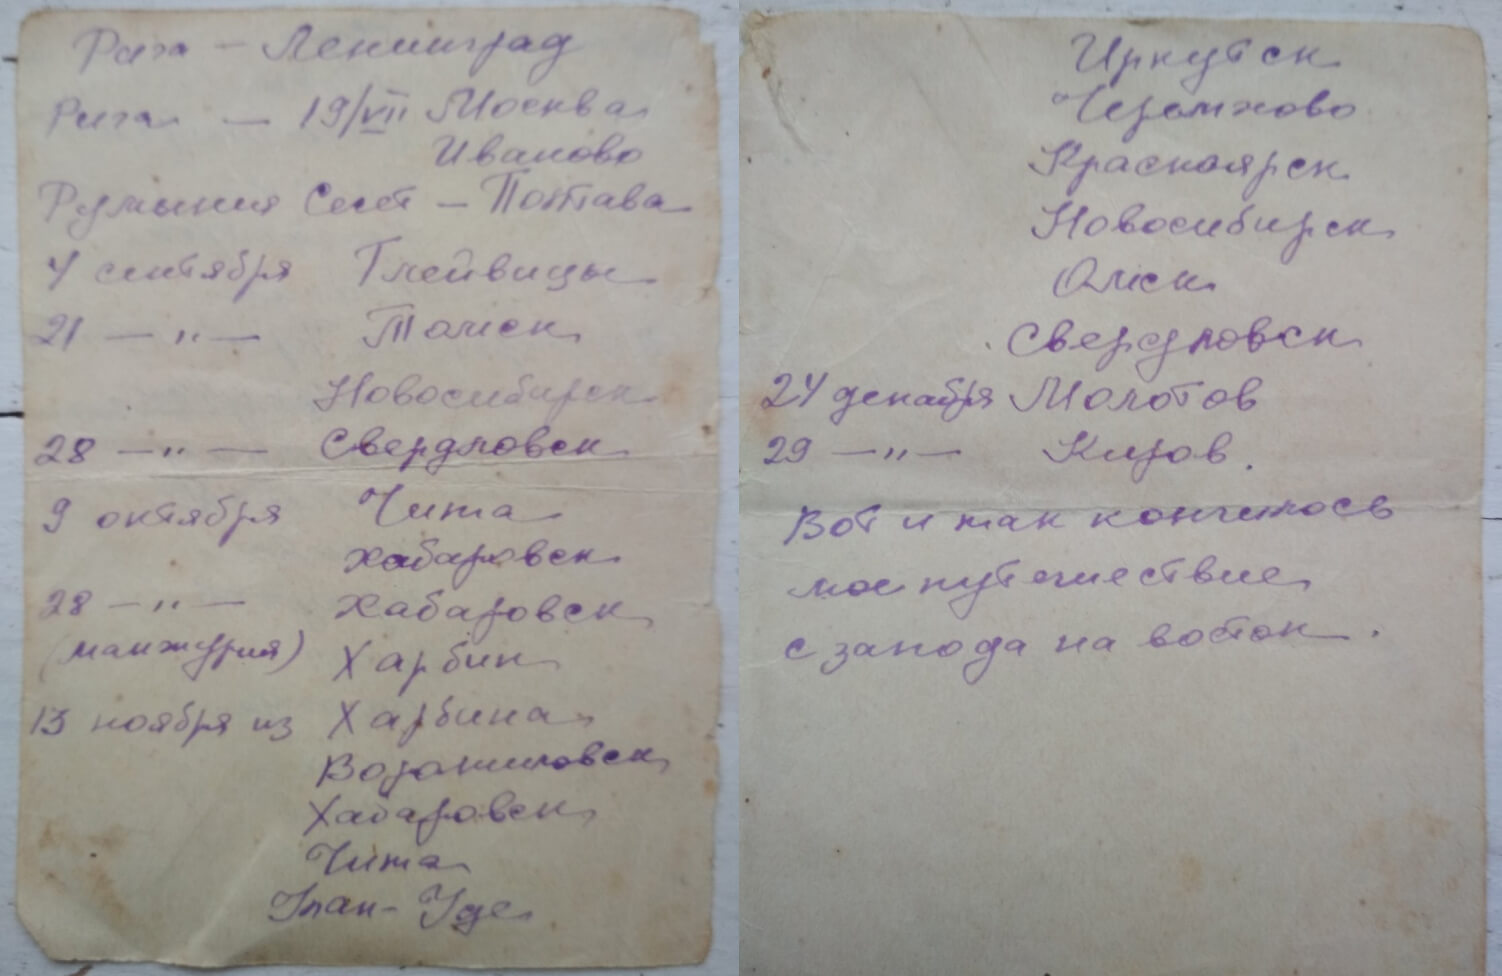 Рига – Ленинград
Рига – 19/VII Москва
Иваново
Румыния Сент – Потава
4 сентября Глейвицы
21 — " — Томск
Новосибирск
28 — " — Свердловск
9 октября Чита
Хабаровск
28 — " — Хабаровск
(манжурия) Харбин
13 ноября из Харбина
Ворошиловск
Хабаровск
Чита
Улан-Уде
Иркутск
Черемхово
Красноярск
Новосибирск
Омск
Свердловск
24 декабря Молотов
29 — " — Киров.
Вот и так кончилось
мое путешествие
с запода на восток.